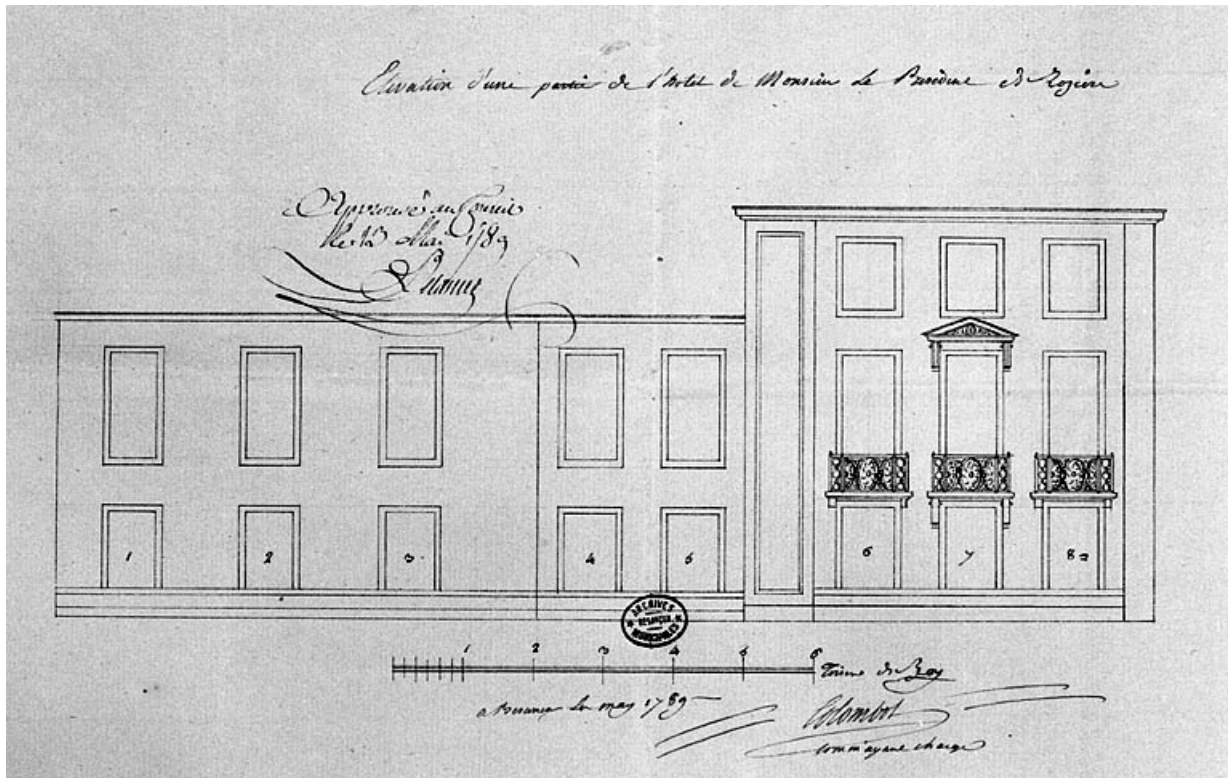 Elevation d'une partie de l'hotel de Monsieur Le de Rozière
Approuvé au Conseil
Mai 1789
1 2 3 4 5 6 7 8
ARCHIVES
BESANÇON
MUNICIPALES
1 2 3 4 5 6 Toises de Roy
a Besançon may 1789
Colombot
comm ayant charge